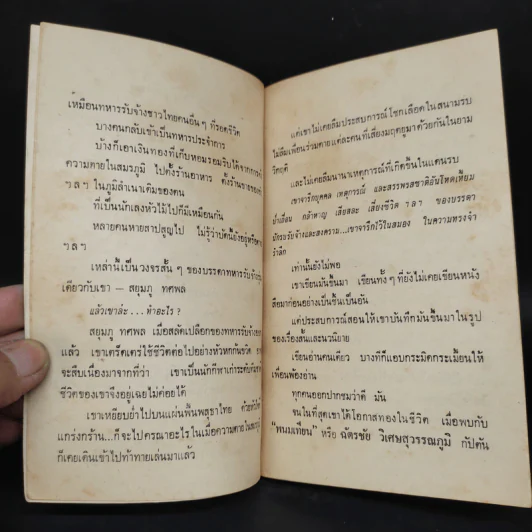 เหมือนทหารรับจ้างชาวไทยคนอื่น ๆ ที่รอดชีวิต
บางคนกลับเข้าเป็นทหารประจำการ
บ้างก็เอาเงินทองที่เก็บหอมรอมริบได้จากการ
ความตายในสมรภูมิ ไปตั้งร้านอาหาร ตั้งร้านขายของ
ฯลฯ ในภูมิลำเนาเดิมของตน
ที่เป็นนักเลงหัวไม้ไปก็มีเหมือนกัน
หลายคนหายสาปสูญไป ไม่รู้ว่าบัดนี้ยังอยู่หรือ
ฯลฯ
เหล่านี้เป็นวงจรสั้น ๆ ของบรรดาทหารรับจ้าง
เดียวกับเขา — สยุมภู ทศพล
แล้วเขาล่ะ ... ทำอะไร ?
สยุมภู ทศพล เมื่อสลัดเปลือกของทหารรับจ้าง
แล้ว เขาเตร็ดเตร่ใช้ชีวิตต่อไปอย่างหัวหกก้นขวิด
จะสืบเนื่องมาจากที่ว่า เขาเป็นนักกีฬาเก่าระดับ
ชีวิตของเขาจึงอยู่เฉยไม่ค่อยได้
เขาเหยียบย่ำไปบนแผ่นผืนพสุธาไทย ด้วยหัวใจ
แกร่งกร้าน...ก็จะไปครณาอะไรในเมื่อความตายในสมรภูมิ
ก็เคยเดินเข้าไปท้าทายเล่นมาแล้ว
แต่เขาไม่เคยลืมประสบการณ์โชกเลือดในสนามรบ
ไม่ลืมเพื่อนร่วมตายแต่ละคนที่เสี่ยงมฤตยูมาด้วยกันในยาม
วิกฤติ
และไม่เคยลืมนานาเหตุการณ์ที่เกิดขึ้นในแดนรบ
เขาจาริกบุคคล เหตุการณ์ และสรรพรสชาติอันโหดเหี้ยม
น้ำเถื่อน กล้าหาญ เสียสละ เสี่ยงชีวิต ฯลฯ ของบรรดา
นักรบรับจ้างและสงคราม...เขาจาริกไว้ในสมอง ในความทรงจำ
รำลึก
เท่านั้นยังไม่พอ
เขาเขียนมันขึ้นมา เขียนทั้ง ๆ ที่ยังไม่เคยเขียนหนัง
สือมาก่อนอย่างเป็นชิ้นเป็นอัน
แต่ประสบการณ์สอนให้เขาบันทึกมันขึ้นมาในรูป
ของเรื่องสั้นและนวนิยาย
เขียนอ่านคนเดียว บางทีก็แอบกระมิดกระเมี้ยนให้
เพื่อนพ้องอ่าน
ทุกคนออกปากชมว่าดี มัน
จนในที่สุดเขาได้โอกาสทองในชีวิต เมื่อพบกับ
“พนมเทียน” หรือ ฉัตรชัย วิเศษสุวรรณภูมิ กัปตัน